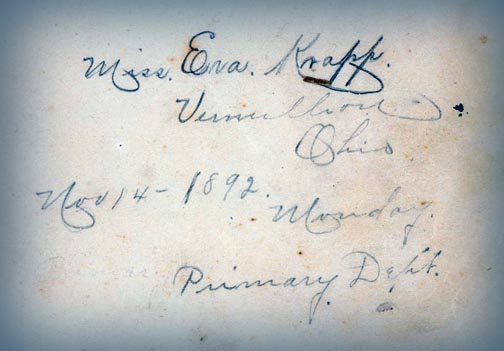 Miss. Eva. Krapp.
Vermillion
Ohio
Nov 14 - 1892.
Monday.
Primary Dept.